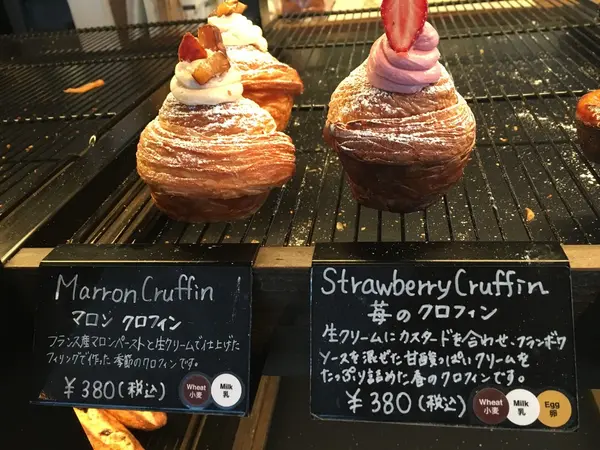 Marron Cruffin
マロン クロフィン
フランス産マロンペーストと生クリームで仕上げた
フィリングで作った季節のクロフィンです。
¥380(税込)
Wheat
小麦
Milk
乳
Strawberry Cruffin
苺のクロフィン
生クリームにカスタードを合わせ、フランボワ
ソースを混ぜた甘酸っぱいクリームを
たっぷり詰めた春のクロフィンです。
¥380(税込)
Wheat
小麦
Milk
乳
Egg
卵